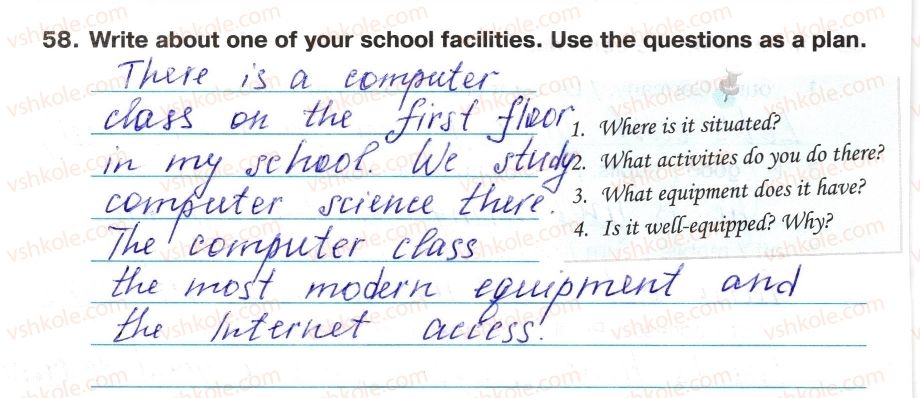 58. Write about one of your school facilities. Use the questions as a plan.
There is a computer
class on the first floor
in my school. We study
computer science there.
The computer class
the most modern equipment and
the Internet access.
1. Where is it situated?
2. What activities do you do there?
3. What equipment does it have?
4. Is it well-equipped? Why?
vshkole.com